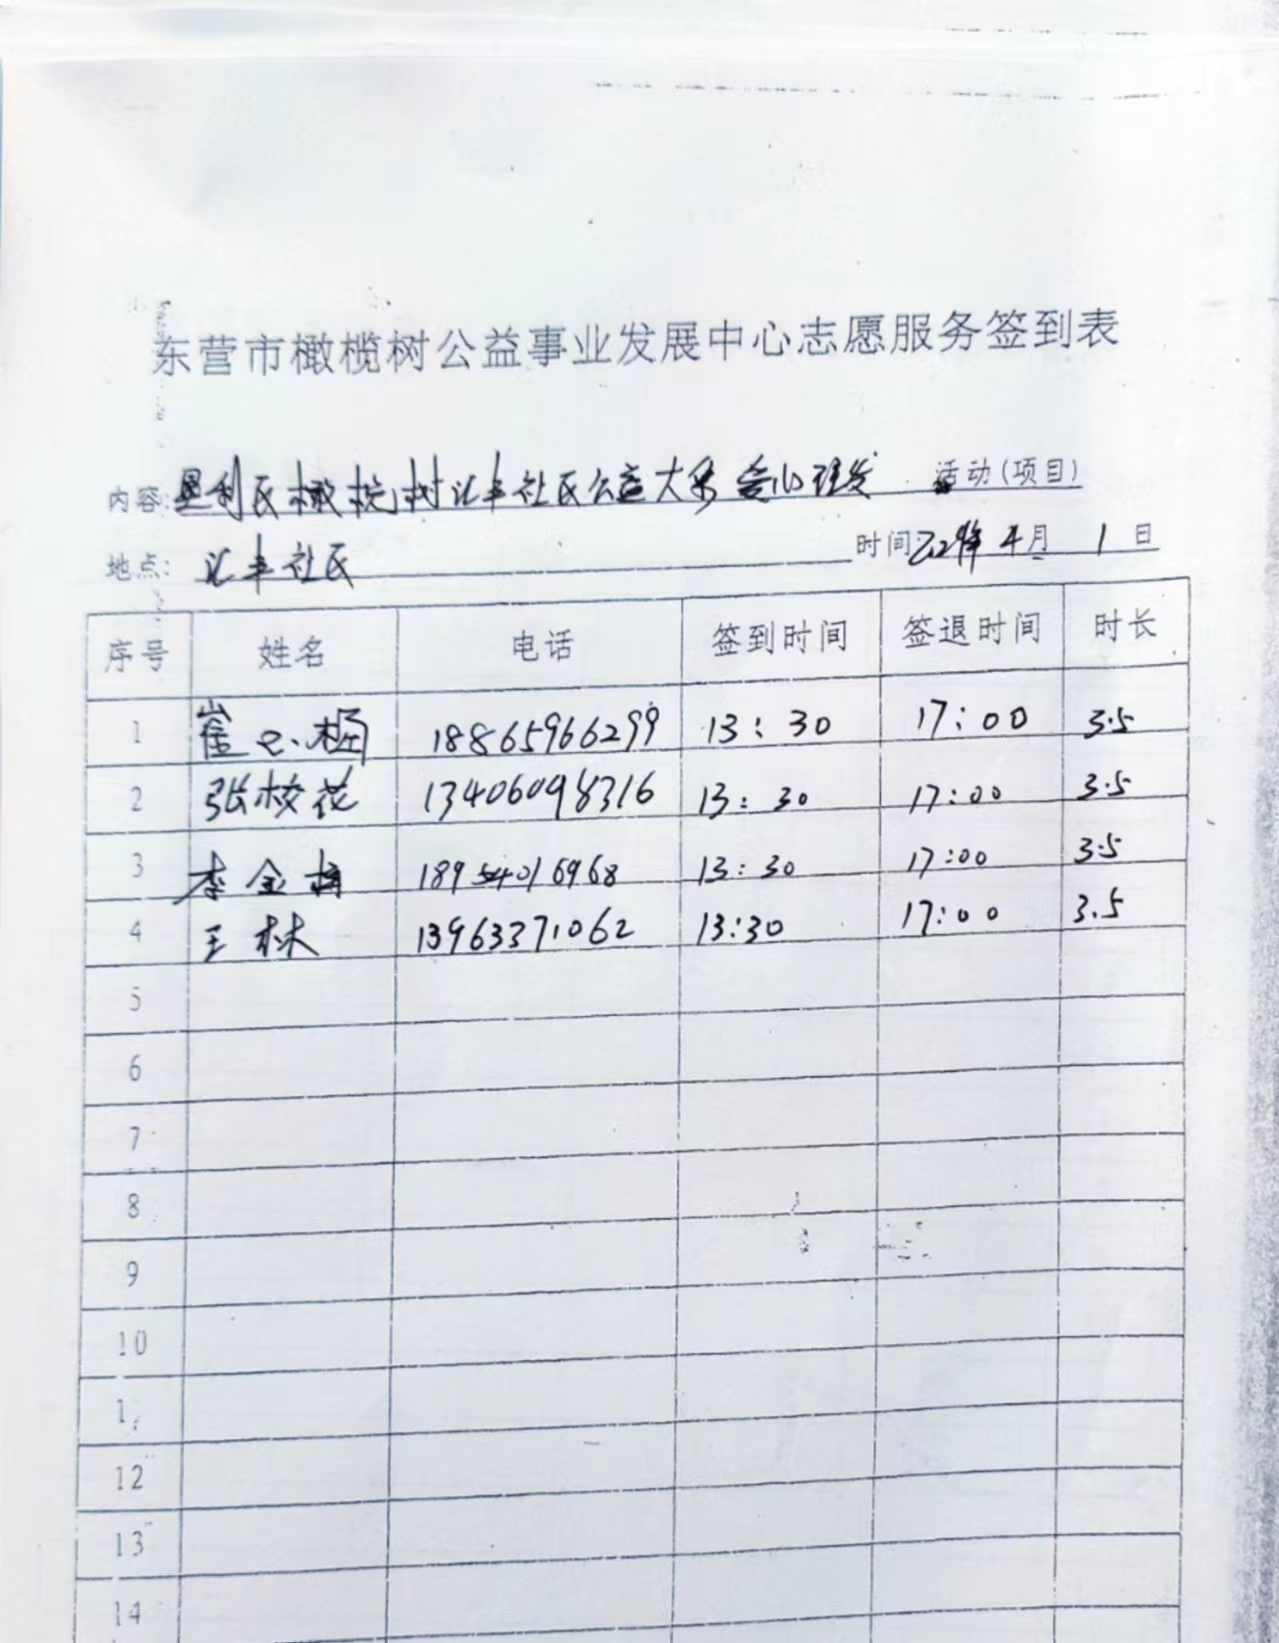 东营市橄榄树公益事业发展中心志愿服务签到表
内容: 垦利区橄榄树汇丰社区公益大集 爱心理发 活动(项目)
地点: 汇丰社区 时间 年 4月 1日
序号 姓名 电话 签到时间 签退时间 时长
1 崔 18865966299 13:30 17:00 3.5
2 张校花 13406098316 13:30 17:00 3.5
3 李金梅 18954016968 13:30 17:00 3.5
4 王林 13963371062 13:30 17:00 3.5
5
6
7
8
9
10
12
13
14